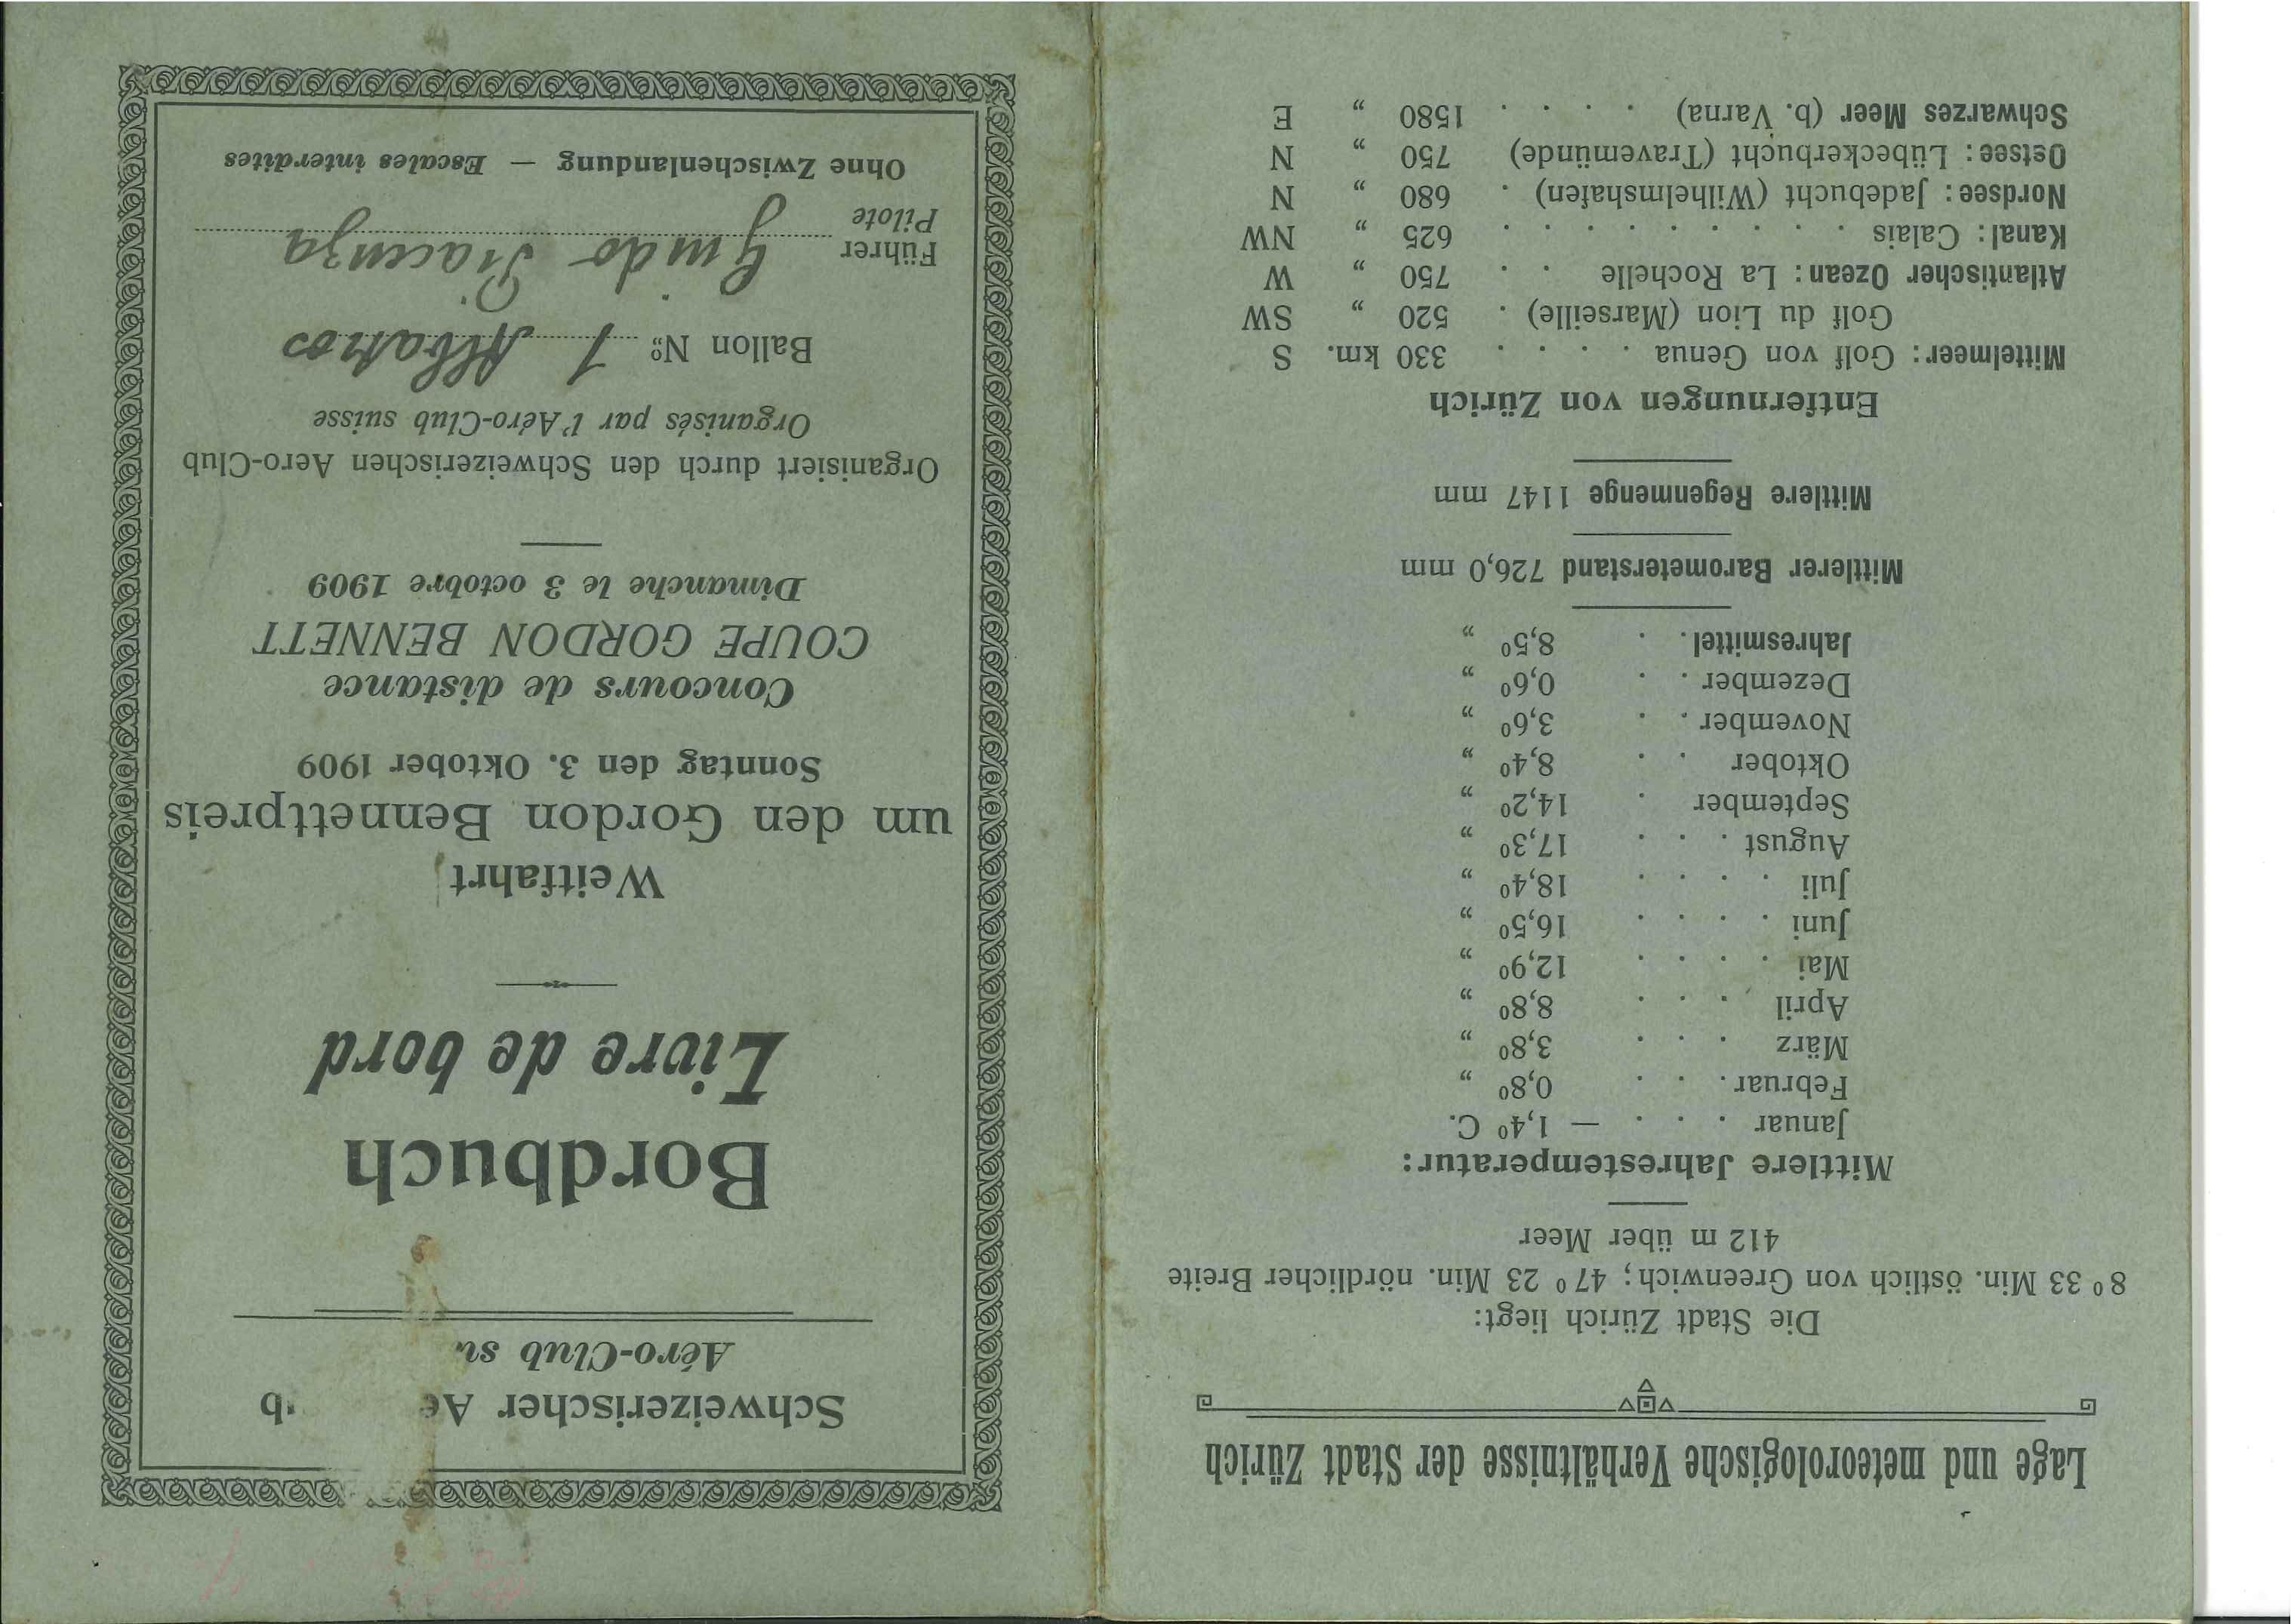 Lage und meteorologische Verhältnisse der Stadt Zürich
Die Stadt Zürich liegt:
8º 33 Min. östlich von Greenwich; 47º 23 Min. nördlicher Breite
412 m über Meer
Mittlere Jahrestemperatur:
Januar . . . — 1,4º C.
Februar . . . 0,8º „
März . . . 3,8º „
April . . . 8,8º „
Mai . . . . 12,9º „
Juni . . . . 16,5º „
Juli . . . . 18,4º „
August . . . 17,3º „
September . 14,2º „
Oktober . . 8,4º „
November . . 3,6º „
Dezember . . 0,6º „
Jahresmittel . . 8,5º „
Mittlerer Barometerstand 726,0 mm
Mittlere Regenmenge 1147 mm
Entfernungen von Zürich
Mittelmeer: Golf von Genua . . . . 330 km. S
Golf du Lion (Marseille) . 520 „ SW
Atlantischer Ozean: La Rochelle . . 750 „ W
Kanal: Calais . . . . . . . . . 625 „ NW
Nordsee: Jadebucht (Wilhelmshafen) . 680 „ N
Ostsee: Lübeckerbucht (Travemünde) 750 „ N
Schwarzes Meer (b. Varna) . . . . 1580 „ E
Schweizerischer Ae b
Aéro-Club su
Bordbuch
Livre de bord
Weitfahrt
um den Gordon Bennettpreis
Sonntag den 3. Oktober 1909
Concours de distance
COUPE GORDON BENNETT
Dimanche le 3 octobre 1909
Organisiert durch den Schweizerischen Aero-Club
Organisés par l'Aéro-Club suisse
Ballon Nº 1 Albatros
Führer
Pilote Guido Piacenza
Ohne Zwischenlandung — Escales interdites